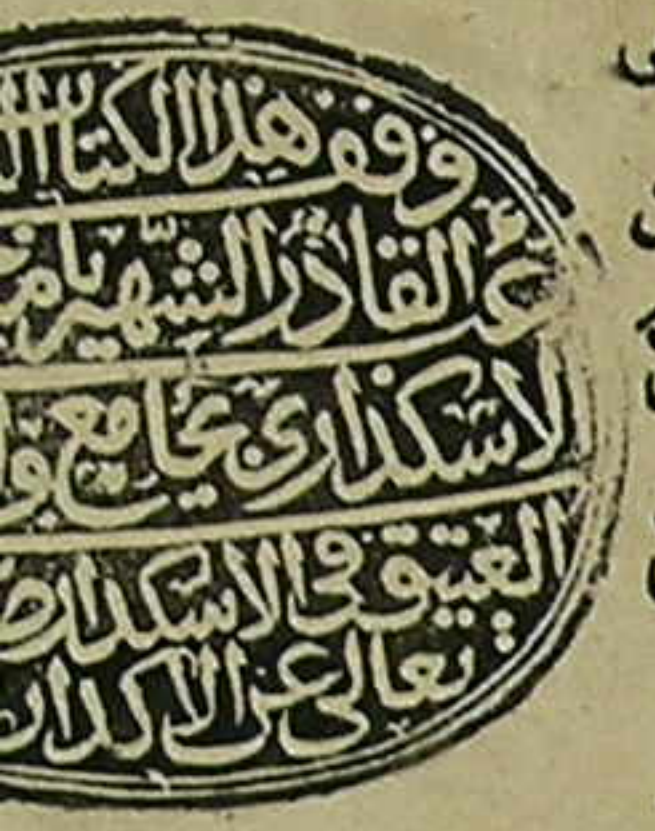 وقف هذا الكتاب
عبد القادر الشهير بامير
الاسكداري بجامع
العتيق في الاسكدار
تعالى عن الاكدار